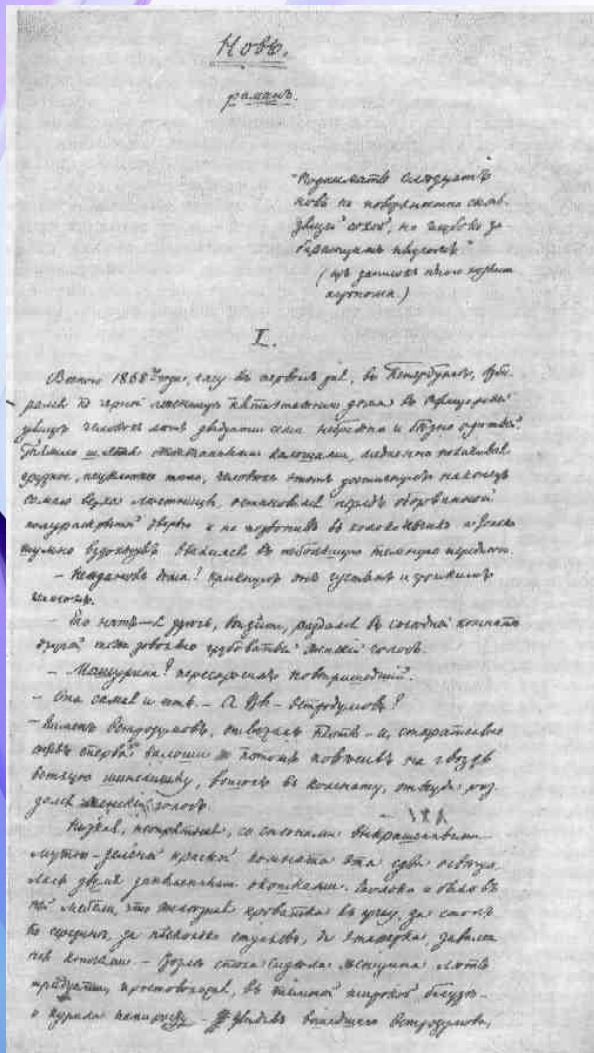 Новь.
романъ.
"Поднимать слѣдуетъ
новь не поверхностно сколь-
зящей сохой, но глубоко за-
бирающимъ плугомъ"
(Изъ записокъ хозяина
агронома.)
I.
Весною 1868го года, часу въ первомъ дня, въ Петербургѣ, взби-
рался по черной лѣстницѣ пятиэтажнаго дома въ Офицерской
улицѣ человѣкъ лѣтъ двадцати семи небрежно и бѣдно одѣтый.
Тяжело шлепая стоптанными калошами, медленно покачивая
грузное, неуклюжее тѣло, человѣкъ этотъ достигнулъ наконецъ
самаго верха лѣстницы, остановился передъ оборванной
полураскрытой дверью и не позвонивъ въ колокольчикъ а только
шумно вздохнувъ ввалился въ небольшую темную переднюю.
– Неждановъ дома? крикнулъ онъ густымъ и громкимъ
голосомъ.
– Его нѣтъ – я здѣсь, войдите, раздался въ сосѣдней комнатѣ
другой тоже довольно грубоватый женскій голосъ.
– Машурина? переспросилъ новопришедшій.
– Она самая и есть. – А Вы – Остродумовъ?
– Пименъ Остродумовъ, отвѣчалъ тотъ – и, старательно
снявъ сперва калоши потомъ повѣсивъ на гвоздь
ветхую шинелишку, вошелъ въ комнату, откуда раз-
дался женскій голосъ.
Низкая, неопрятная, со стѣнами выкрашенными
мутно-зеленой краской комната эта едва освѣща-
лась двумя запыленными окошками. Только и было въ
ней мебели, что желѣзная кроватка въ углу, да столъ
по серединѣ, да нѣсколько стульевъ, да этажерка заваленная
книгами – Возлѣ стола сидѣла женщина лѣтъ
тридцати, простоволосая, въ темной широкой блузѣ –
и курила папироску – увидѣвъ вошедшаго Остродумова,